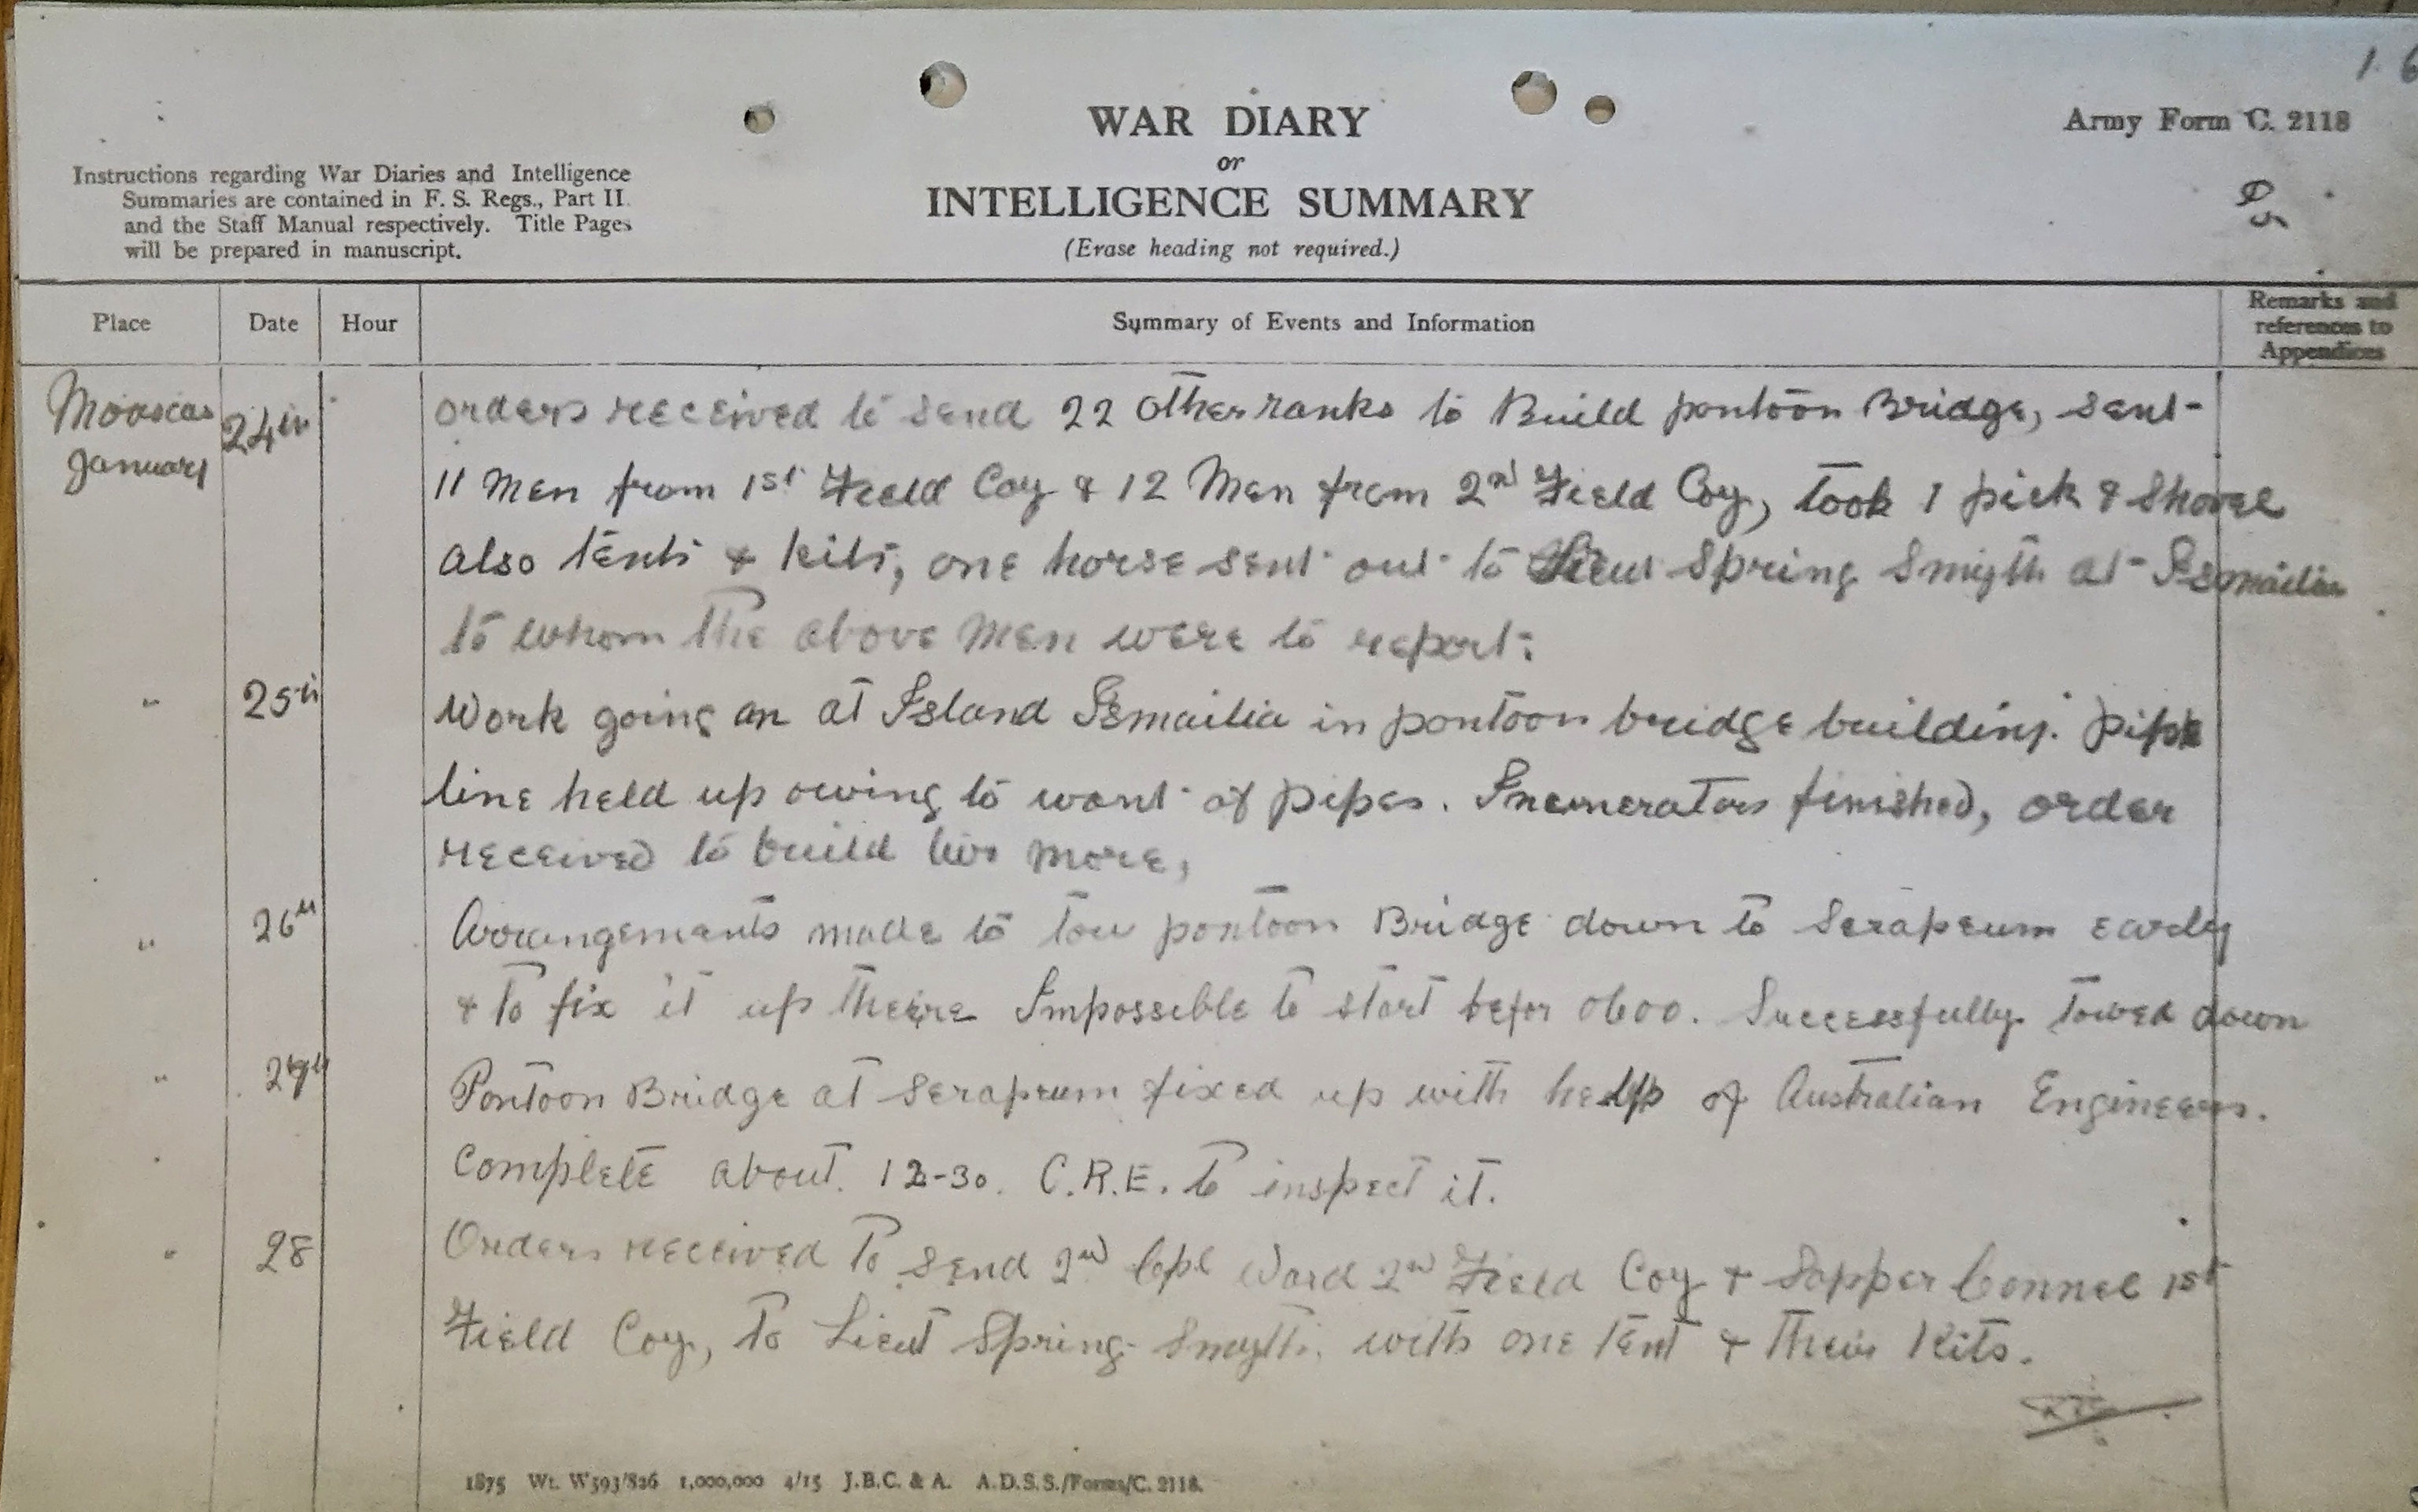 1 6
WAR DIARY
or
INTELLIGENCE SUMMARY
(Erase heading not required.)
Army Form C. 2118
Instructions regarding War Diaries and Intelligence
Summaries are contained in F. S. Regs., Part II.
and the Staff Manual respectively. Title Pages
will be prepared in manuscript.
Place Date Hour Summary of Events and Information Remarks and references to Appendices
Moascar January 24th orders received to send 22 other ranks to Build pontoon Bridge, sent
11 Men from 1st Field Coy & 12 Men from 2nd Field Coy, took 1 pick & Shovel
also tents & kits, one horse sent out to Lieut Spring Smyth at Ismailia
to whom the above Men were to report.
" 25th Work going on at Island Ismailia in pontoon bridge building. pipe
line held up owing to want of pipes. Incinerators finished, order
received to build two more,
" 26th Arrangements made to tow pontoon Bridge down to Serapeum early
& to fix it up there Impossible to start befor 0600. Successfully towed down
" 27th Pontoon Bridge at Serapeum fixed up with help of Australian Engineers.
Complete about 12-30. C.R.E. to inspect it.
" 28 Orders received To send 2nd Cpl Ward 2nd Field Coy & Sapper Connel 1st
Field Coy, To Lieut Spring-Smyth. with one tent & their Kits.
1875 Wt. W593/826 1,000,000 4/15 J.B.C. & A. A.D.S.S./Forms/C. 2118.